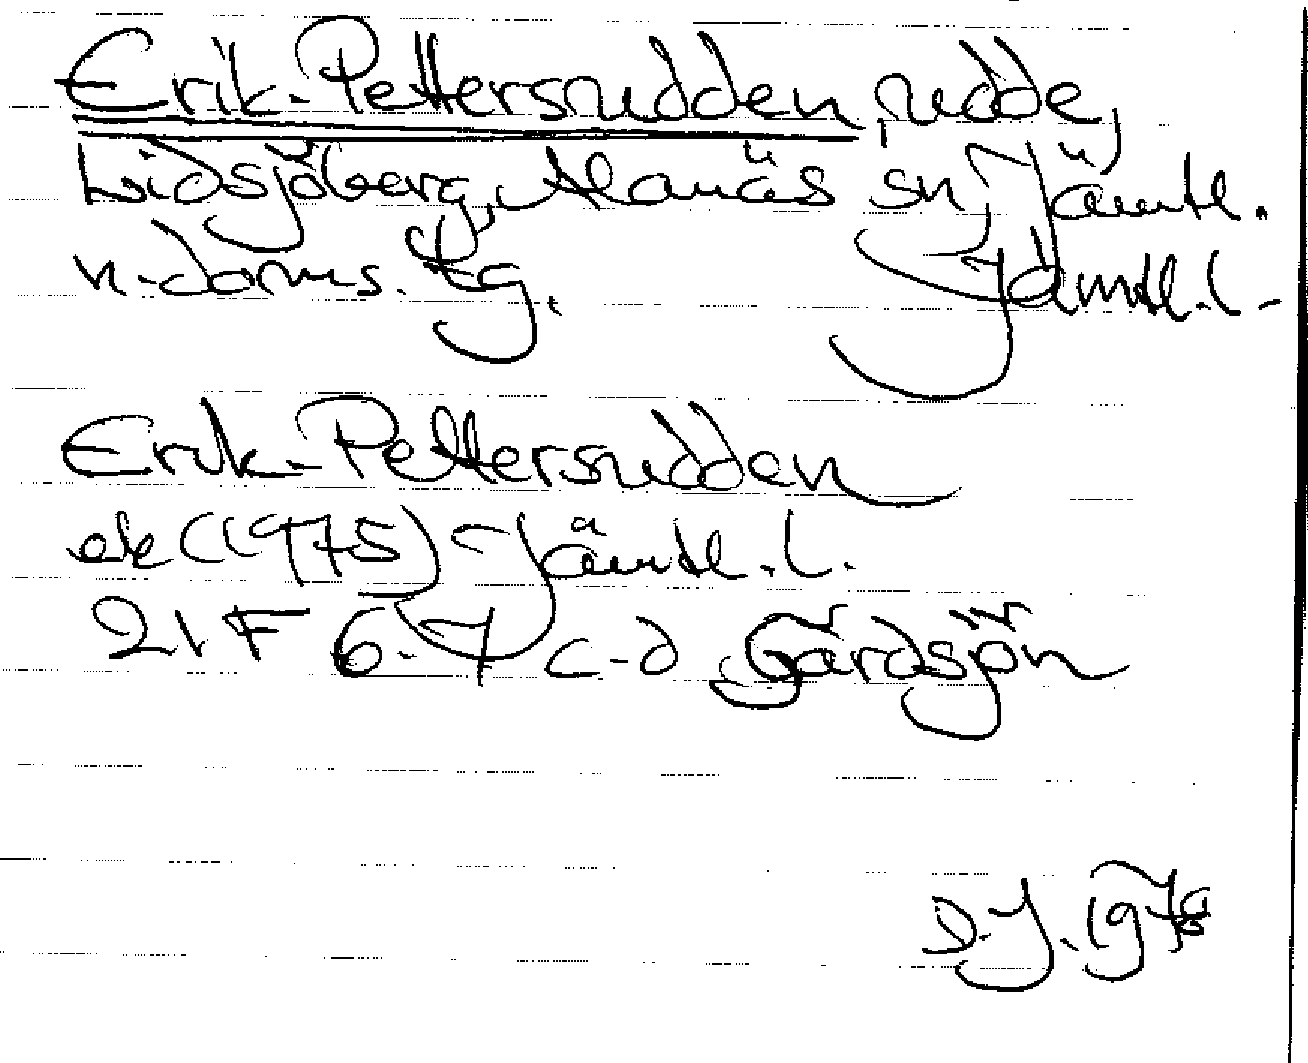 Erik-Pettersrudden, udde,
Lidsjöberg, Alanäs sn, Jämtl.
n-doms. tg. Jämtl. l.
Erik-Pettersrudden
ek (1975) Jämtl. l.
21 F 6-7 c-d Gårdsjön
D.J. 1976